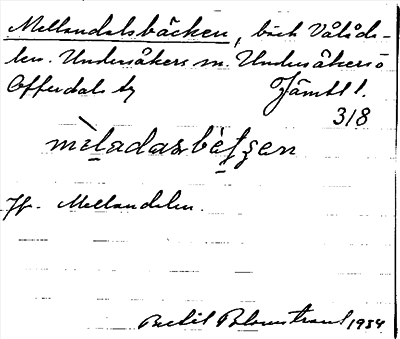 Mellandalsbäcken, bäck Vålåda-
len. Undersåkers sn. Undersåkers o
Offerdals tg Jämtl l.
318
mèladasbètʃen
Jfr. Mellandalen.
Bertil Blomstrand 1934